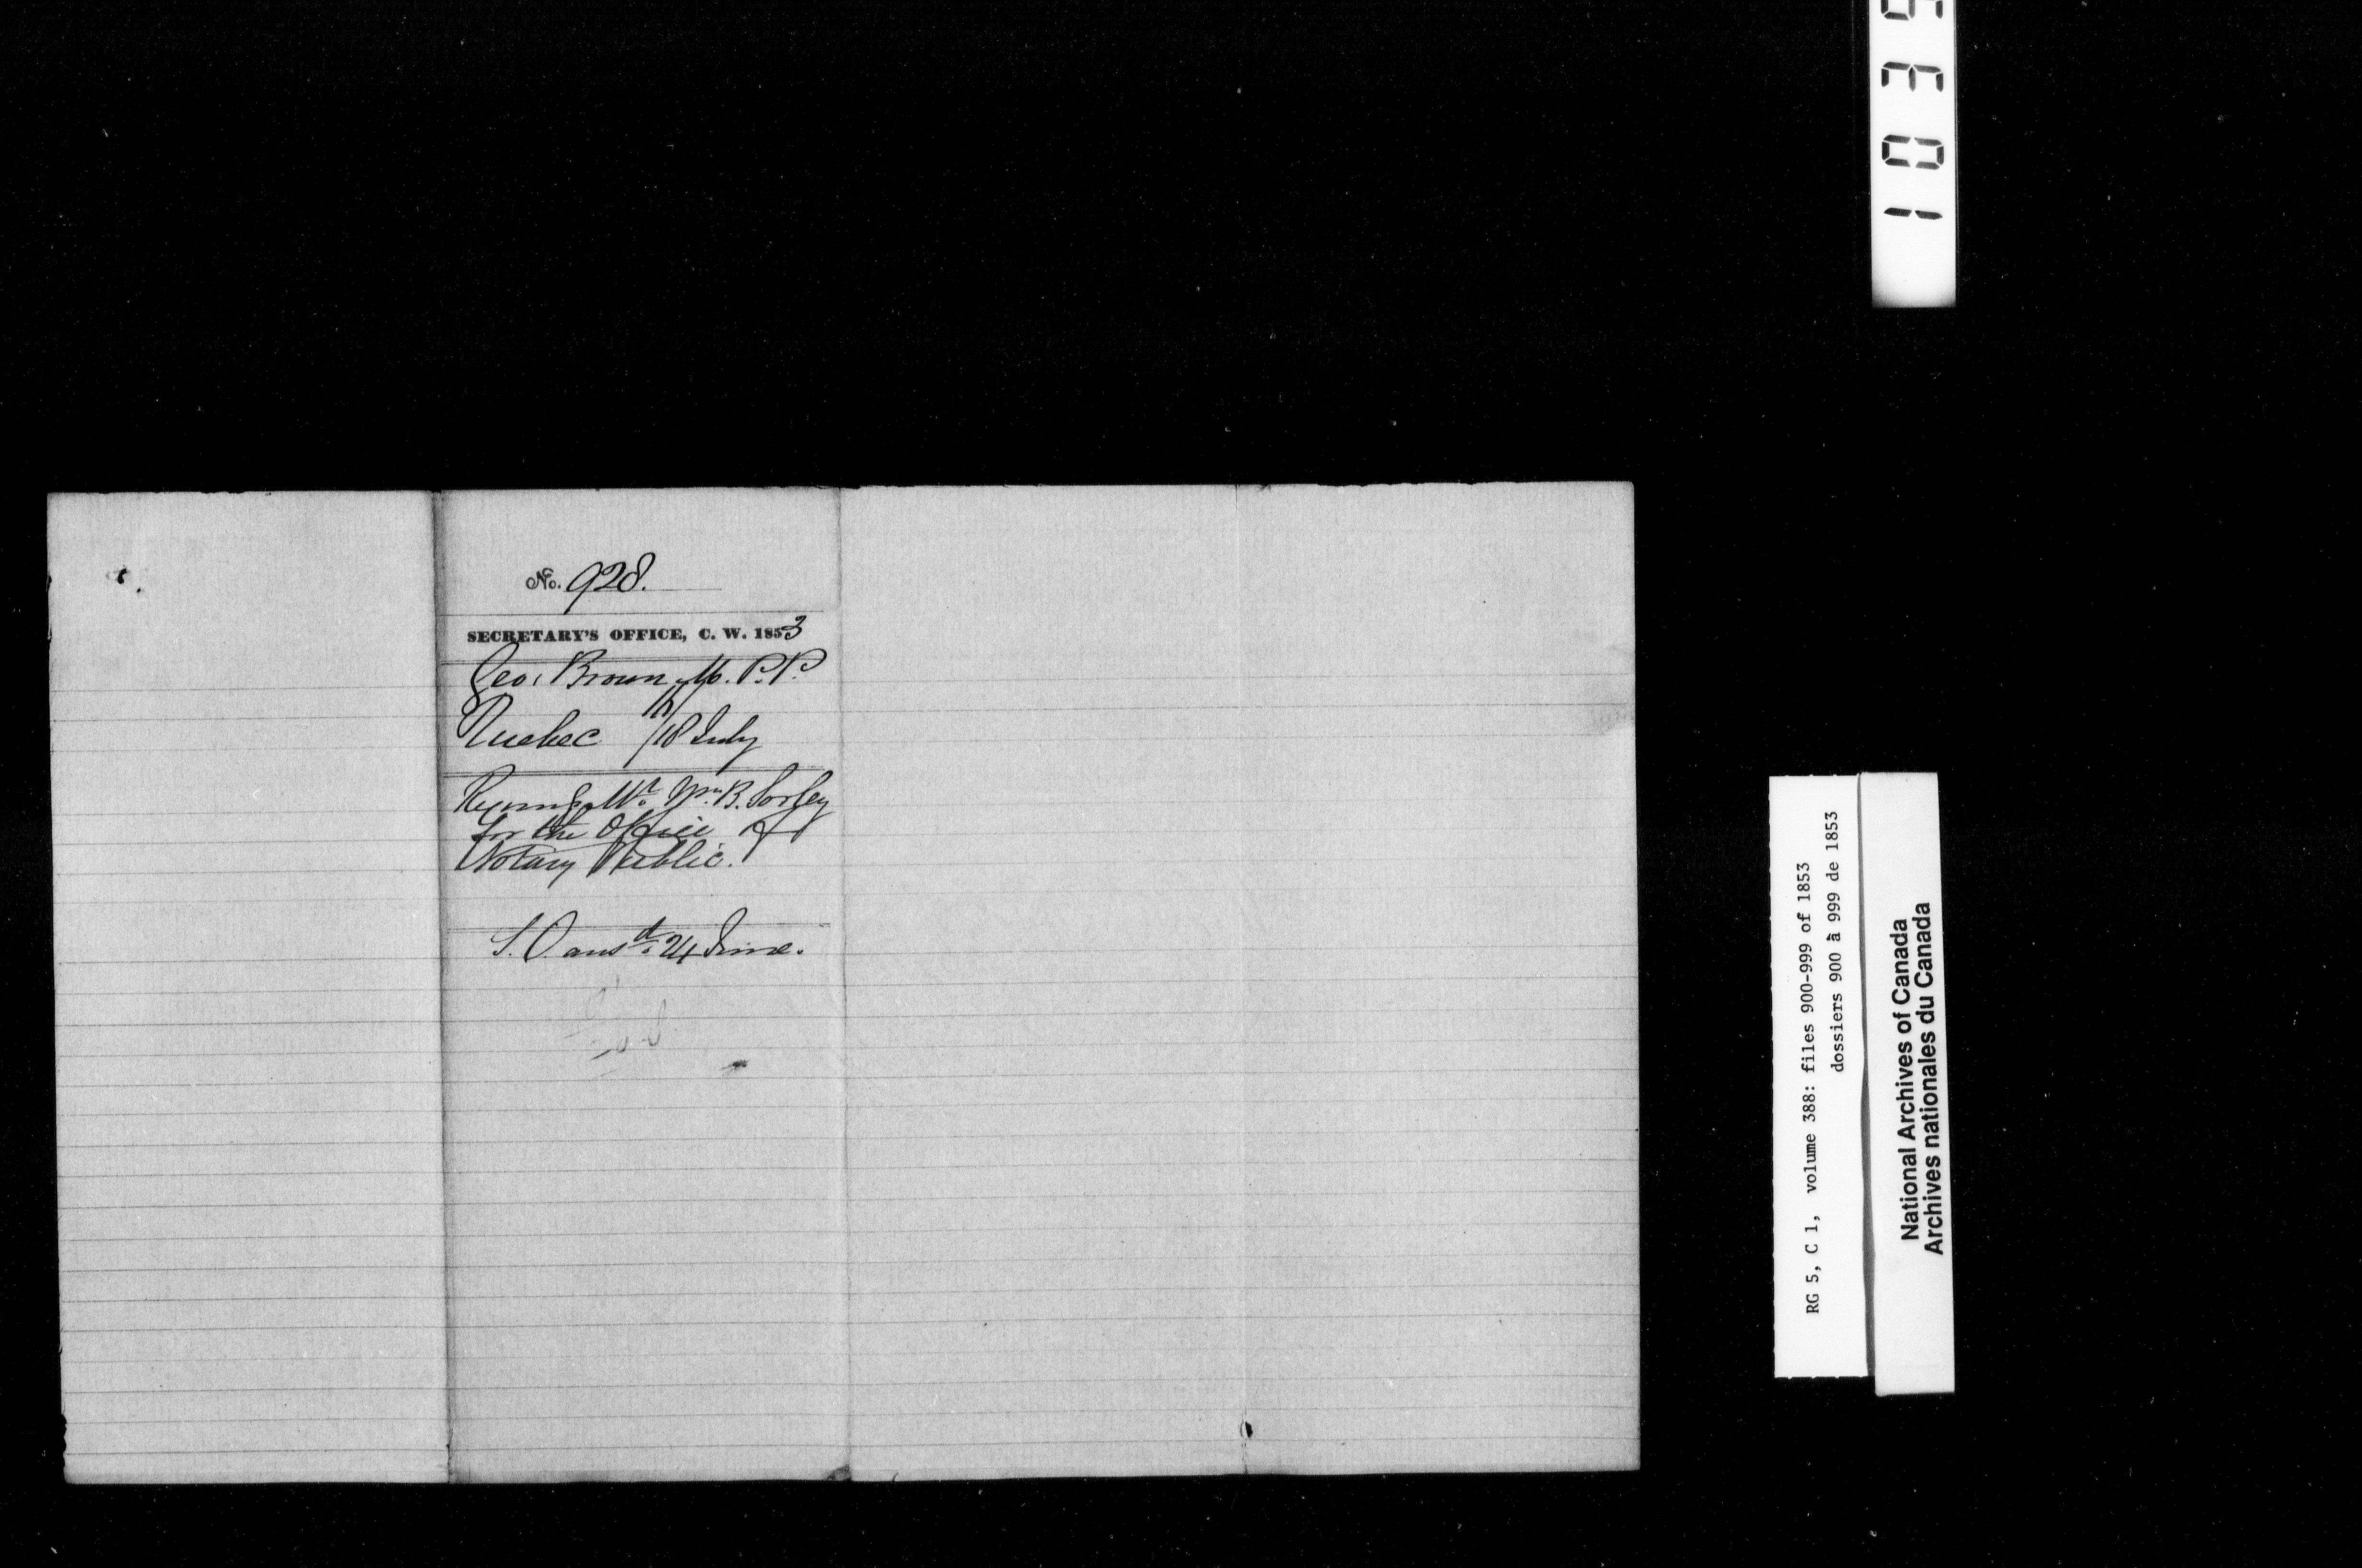 No. 928.
SECRETARY'S OFFICE, C. W. 1853
Geo. Brown, M. P. P.
Quebec 18 July
Mr. Wm. B. Sorley
for the Office of
Notary Public.
ansd. 24 June.
1035
RG 5, C 1, volume 388: files 900-999 of 1853
dossiers 900 à 999 de 1853
National Archives of Canada
Archives nationales du Canada